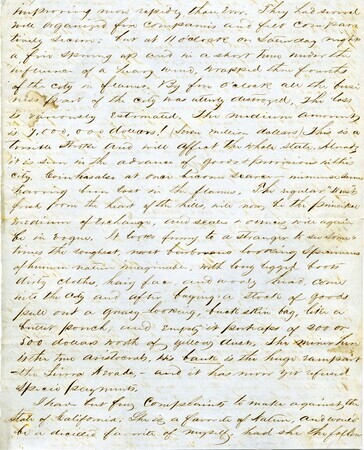 improving more rapidly than ever. They had several
well organized fire companies and felt compara-
tively secure: but at 11 O'clock on Saturday night
a fire sprung up and in a short time under the
influence of a heavy wind, wrapped three fourths
of the city in flames. By five o'clock all the busi-
ness part of the city was utterly destroyed. The loss
is variously estimated. The medium amount
is 7,000,000 dollars! (Seven million dollars) This is a
terrible stroke and will affect the whole state. Already
it is seen in the advance of goods & provisions in this
city. Coin has also at once become scarce - immense sums
having been lost in the flames. The regular
fresh from the heart of the hills, will now, be the principal
medium of exchange, and scales & ounces will again
be in vogue. It looks funny to a stranger to see some
times the roughest most barbarous looking specimens
of human nature imaginable, with long legged boots
dirty clothes, hairy face and wooly head, come
into the city and after buying a stock of goods
pull out a greasy-looking, buckskin bag, like a
bullet pouch, and empty it perhaps of 300 or
500 dollars worth of yellow dust. The miner here
is the true Aristocrat. His bank is the huge rampart
- the Sierra Nevada - and it has never yet refused
Specie payments.
I have but few complaints to make against the
State of California. She is a favorite of Nature, and would
be a decided favorite of myself, had she the follow